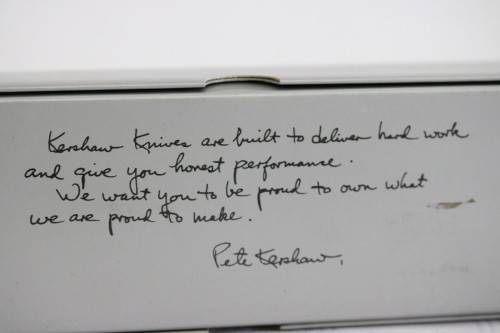 Kershaw Knives are built to deliver hard work
and give you honest performance.
We want you to be proud to own what
we are proud to make.
Pete Kershaw.